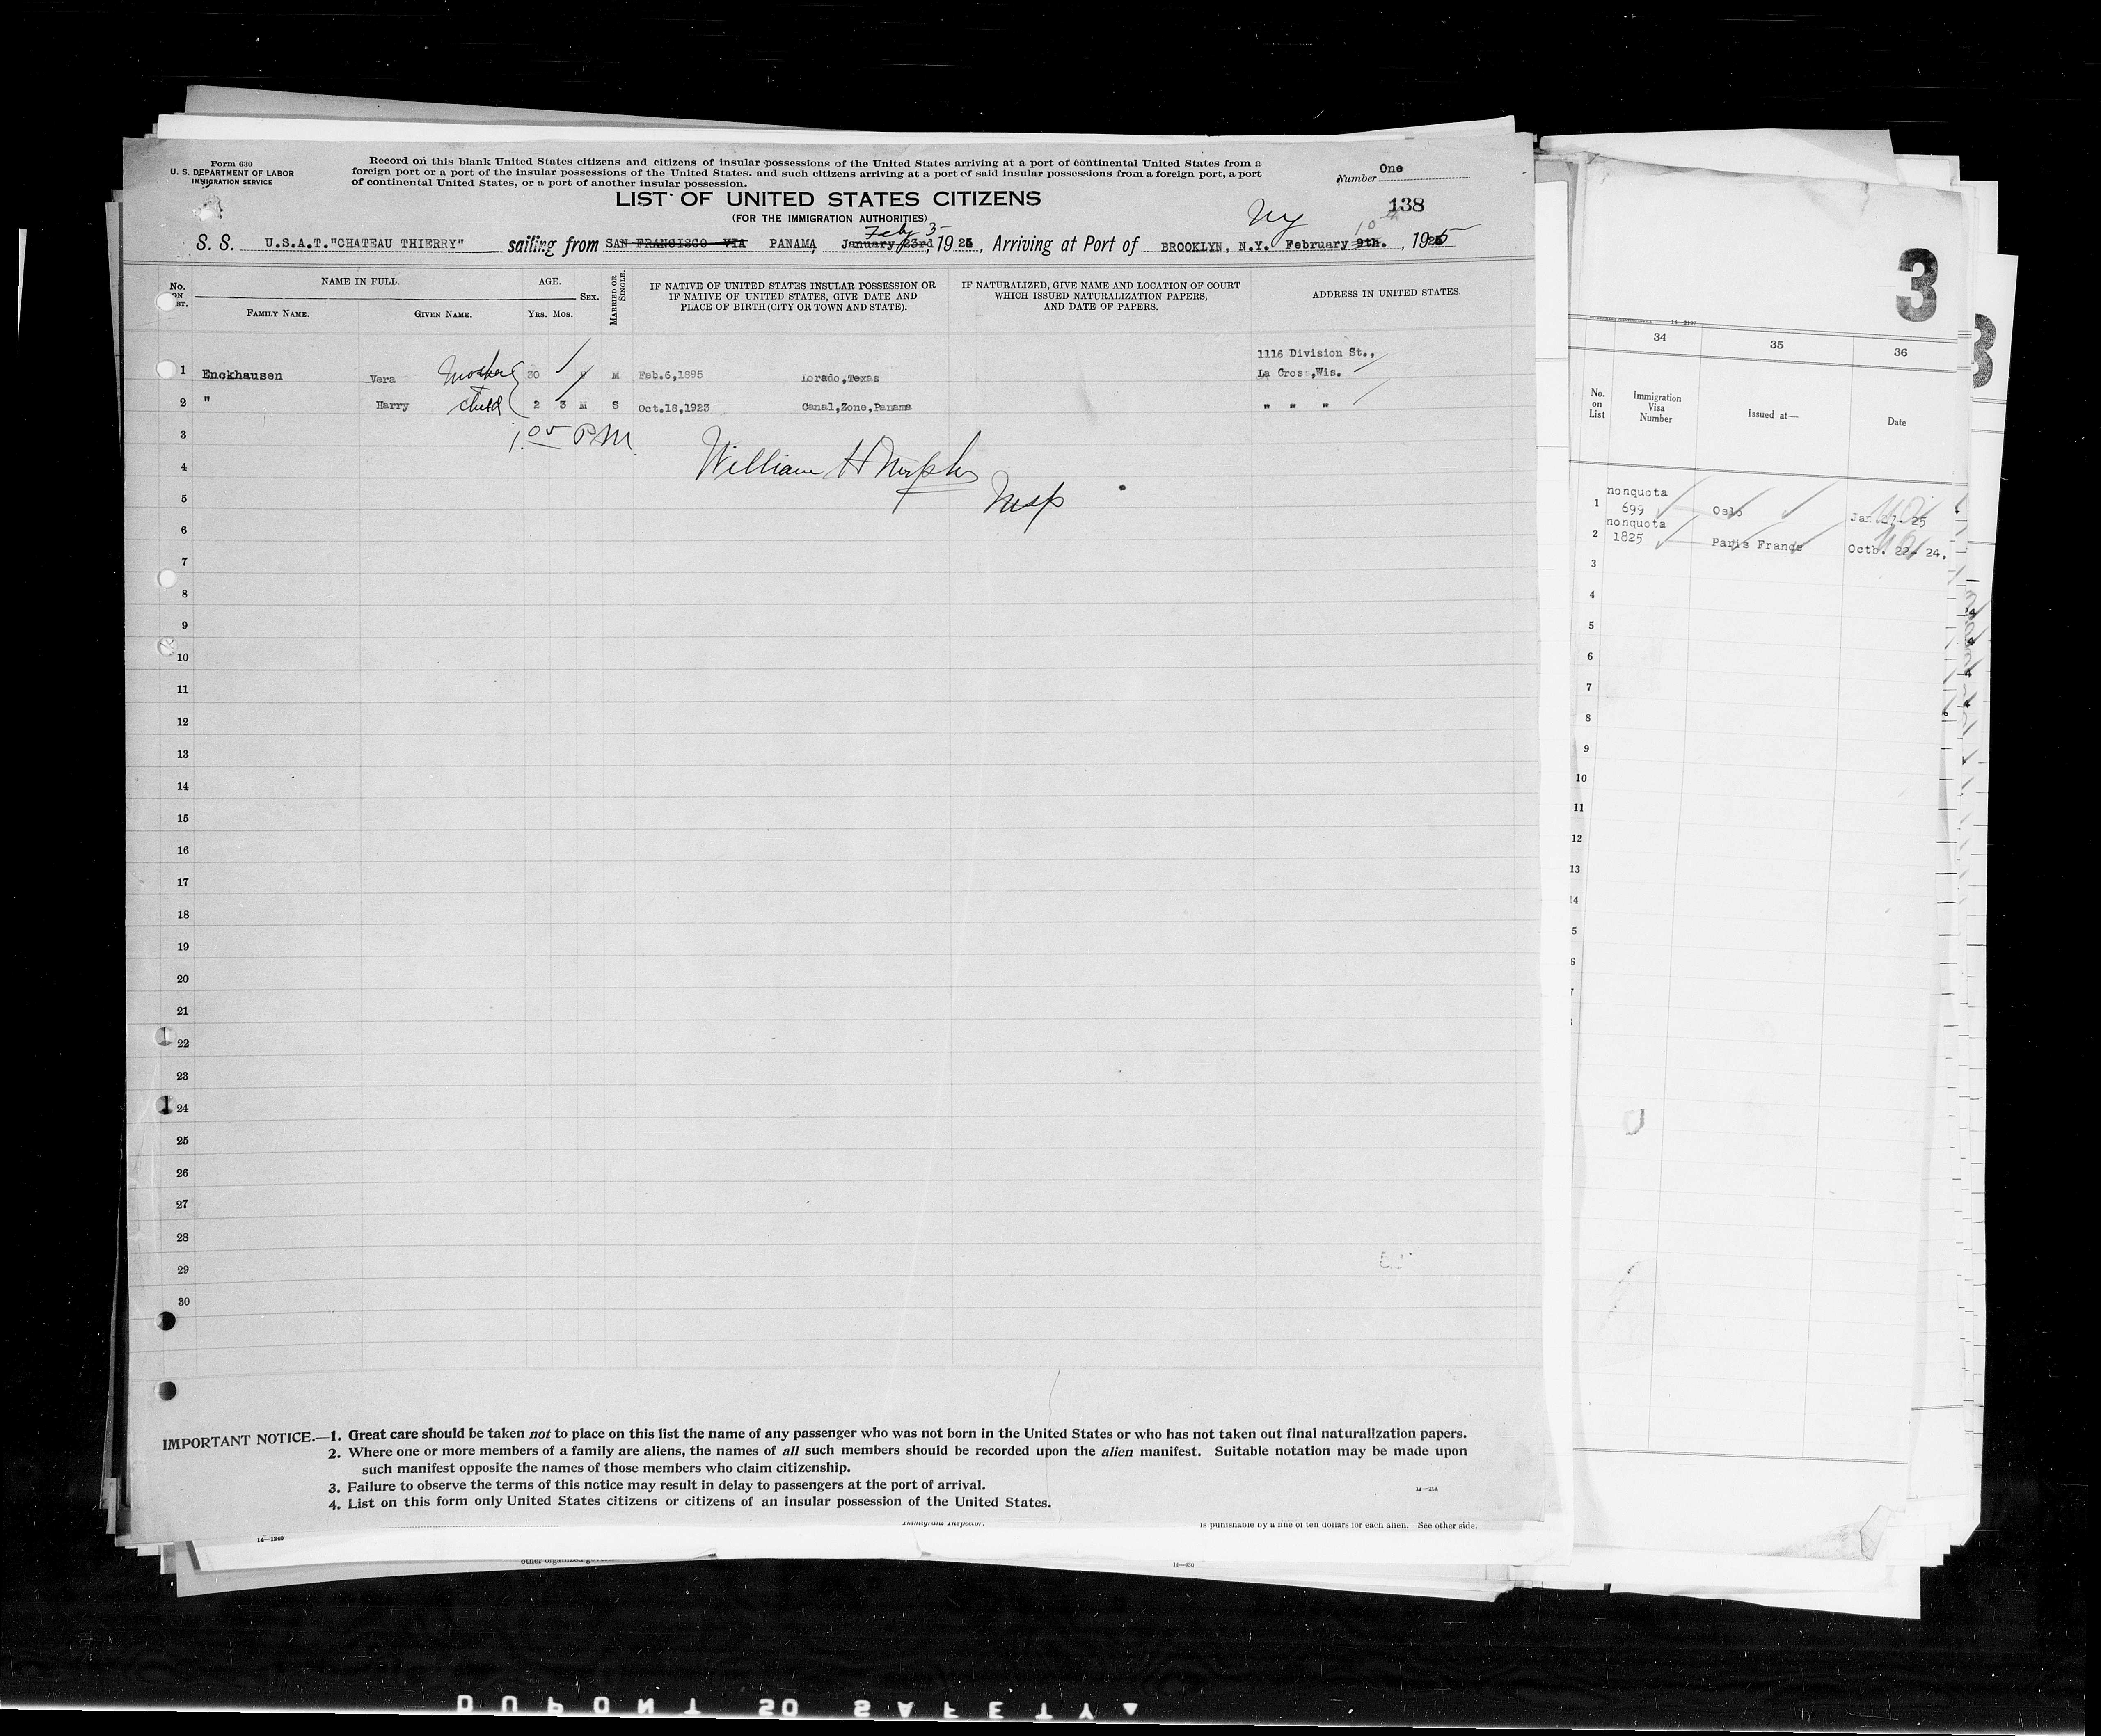 Form 630
U. S. DEPARTMENT OF LABOR
IMMIGRATION SERVICE
Record on this blank United States citizens and citizens of insular possessions of the United States arriving at a port of continental United States from a
foreign port or a port of the insular possessions of the United States. and such citizens arriving at a port of said insular possessions from a foreign port, a port
of continental United States, or a port of another insular possession.
Number One
LIST OF UNITED STATES CITIZENS
138
(FOR THE IMMIGRATION AUTHORITIES)
Feby 3 Ny 10th
S. S. U.S.A.T."CHATEAU THIERRY" sailing from SAN FRANCISCO VIA PANAMA, January 23rd, 1925, Arriving at Port of BROOKLYN, N.Y. February 9th. , 1925
No. ON ST.
NAME IN FULL.
FAMILY NAME. GIVEN NAME.
AGE.
YRS. MOS.
SEX.
MARRIED OR SINGLE.
IF NATIVE OF UNITED STATES INSULAR POSSESSION OR
IF NATIVE OF UNITED STATES, GIVE DATE AND
PLACE OF BIRTH (CITY OR TOWN AND STATE).
IF NATURALIZED, GIVE NAME AND LOCATION OF COURT
WHICH ISSUED NATURALIZATION PAPERS,
AND DATE OF PAPERS.
ADDRESS IN UNITED STATES.
1116 Division St.,
1 Enckhausen Vera Mother 30 M Feb.6,1895 Lorado,Texas La Cross,Wis.
2 " Harry child 2 3 M S Oct.18,1923 Canal,Zone,Panama " " "
3 1.05 PM
4 William H Murphy
5 Insp
6
7
8
9
10
11
12
13
14
15
16
17
18
19
20
21
22
23
24
25
26
27
28
29
30
IMPORTANT NOTICE.—1. Great care should be taken not to place on this list the name of any passenger who was not born in the United States or who has not taken out final naturalization papers.
2. Where one or more members of a family are aliens, the names of all such members should be recorded upon the alien manifest. Suitable notation may be made upon
such manifest opposite the names of those members who claim citizenship.
3. Failure to observe the terms of this notice may result in delay to passengers at the port of arrival.
4. List on this form only United States citizens or citizens of an insular possession of the United States.
14—214
Immigrant Inspector.
is punishable by a fine of ten dollars for each alien. See other side.
14—1240
other organized
14—430
3
3
14—2107
34 35 36
No.
on
List
Immigration
Visa
Number
Issued at—
Date
nonquota
1 699 Oslo Jan 25
nonquota
2 1825 Paris France Octb. 22- 24.
3
4
5
6
7
8
9
10
11
12
13
14
5
6
DUPONT SO SAFETY